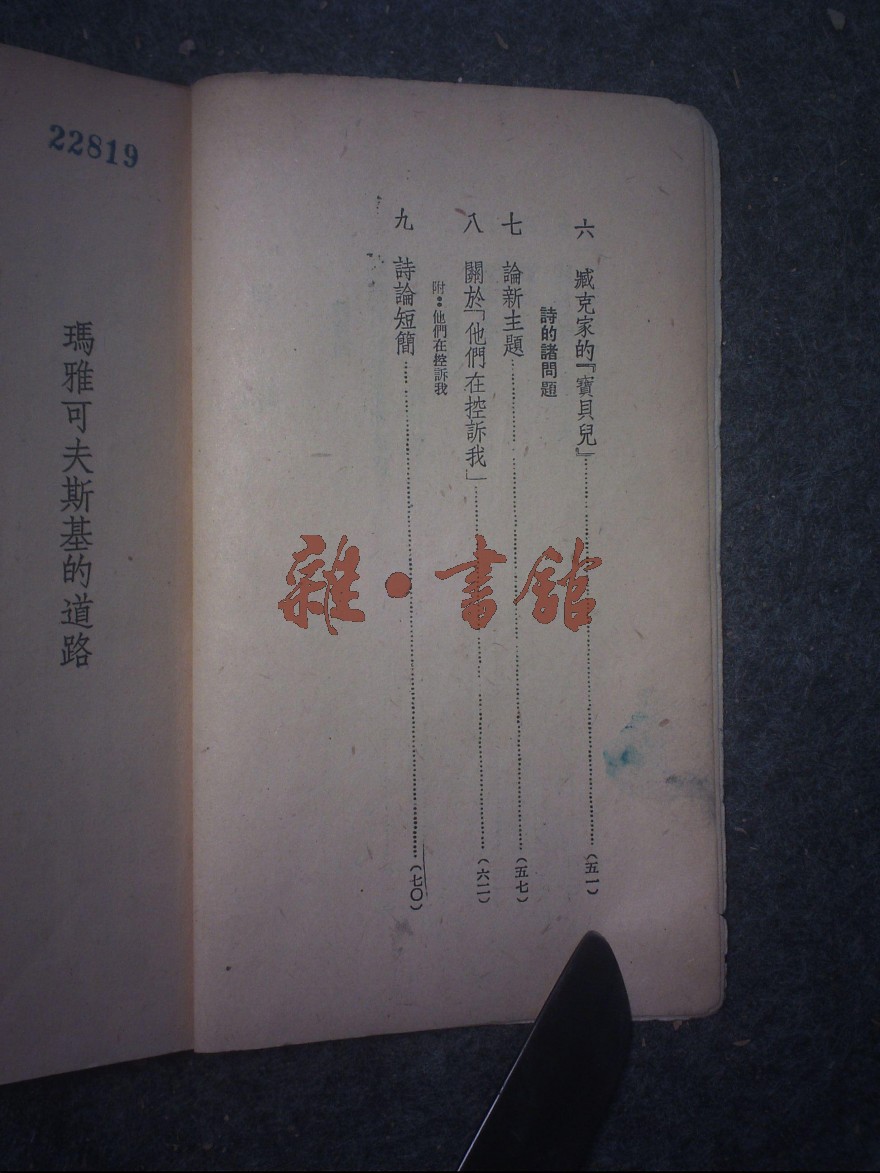 六　臧克家的『寶貝兒』……（五一）
詩的諸問題
七　論新主題……（五七）
八　關於「他們在控訴我」……（六二）
附：他們在控訴我
九　詩論短簡……（七〇）
22819
瑪雅可夫斯基的道路
雜·書館